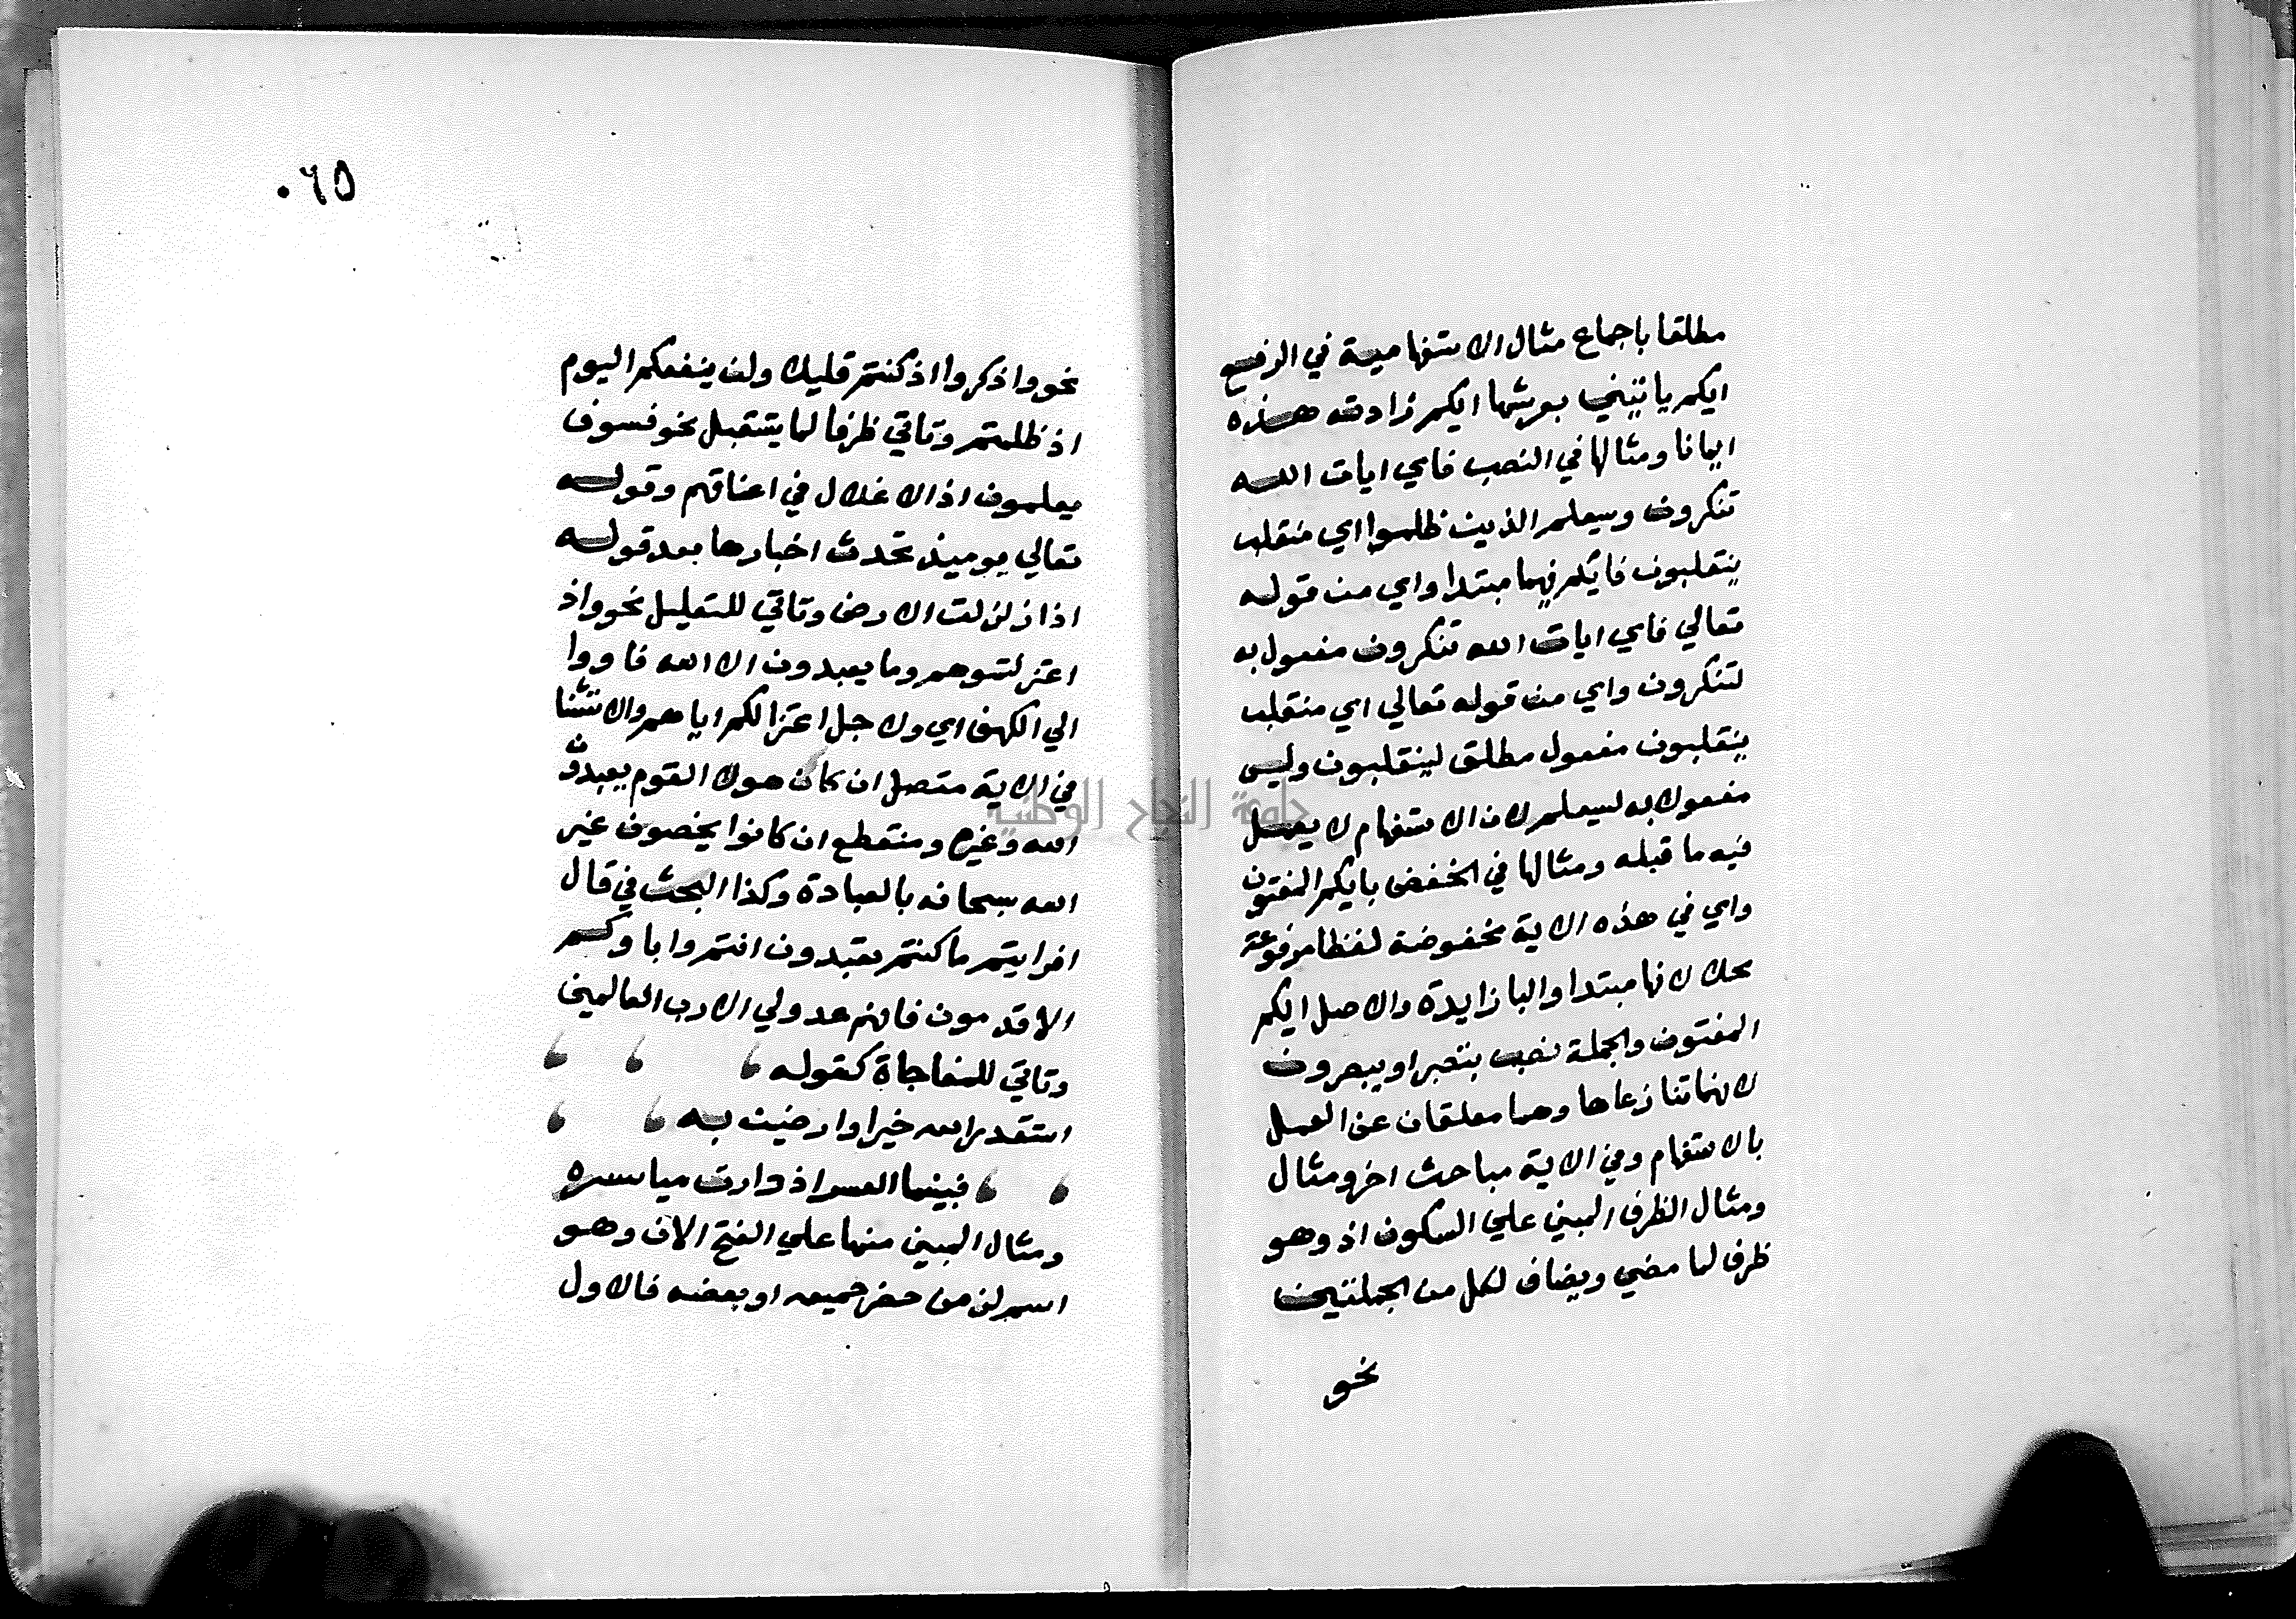 مطلقا باجماع مثال الاستفهامية في الرفع
ايكم ياتيني بعرشها ايكم زادته هذه
ايمانا ومثالها في النصب فاي ايات الله
تنكرون وسيعلم الذين ظلموا اي منقلب
ينقلبون فايكم فيهما مبتدا واي من قوله
تعالي فاي ايات الله تنكرون مفعول به
لتنكرون واي من قوله تعالي اي منقلب
ينقلبون مفعول مطلق لينقلبون وليس
مفعولا به لسيعلم لان الاستفهام لا يعمل
فيه ما قبله ومثالها في الخفض بايكم المفتون
واي في هذه الاية مخفوضة لفظا مرفوعة
محلا لانها مبتدا والبا زايدة والاصل ايكم
المفتون والجملة نصب بتبصر او يبصرون
لانهما تنازعاها وهما معلقان عن العمل
بالاستفهام وفي الاية مباحث اخر ومثال
ومثال الظرف المبني علي السكون اذ وهو
ظرف لما مضي ويضاف لكل من الجملتين
نحو
٠٦٥
نحو واذكروا اذ كنتم قليلا ولن ينفعكم اليوم
اذ ظلمتم وتاتي ظرفا لما يستقبل نحو فسوف
يعلمون اذ الاغلال في اعناقهم وقوله
تعالي يوميذ تحدث اخبارها بعد قوله
اذا زلزلت الارض وتاتي للتعليل نحو واذ
اعتزلتموهم وما يعبدون الا الله فاووا
الي الكهف اي ولاجل اعتزالكم اياهم والاستثنا
في الاية متصل ان كان هولا القوم يعبدون
الله وغيره ومنقطع ان كانوا يخصون غير
الله سبحانه بالعبادة وكذا البحث في قال
افرايتم ما كنتم تعبدون انتم واباوكم
الاقدمون فانهم عدو لي الا رب العالمين
وتاتي للمفاجاة كقوله
استقدر الله خيرا وارضين به
فبينما العسر اذ دارت مياسيره
ومثال المبني منها علي الفتح الان وهو
اسم لزمن حضر جميعه او بعضه فالاول
جامعة النجاح الوطنية